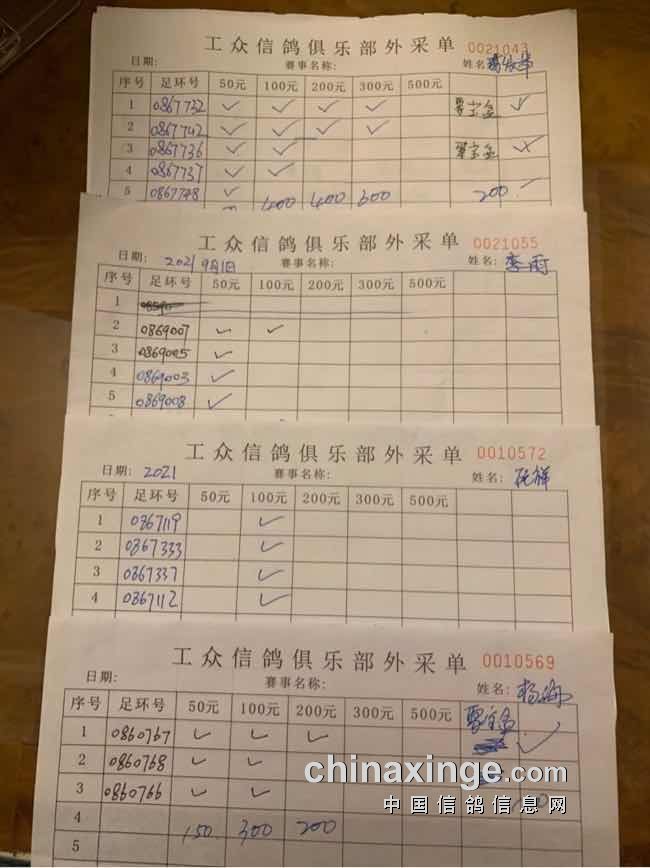 工众信鸽俱乐部外采单 0021043
日期: 赛事名称: 姓名:
序号 足环号 50元 100元 200元 300元 500元
1 0867732 ✓ ✓ ✓ ✓ ✓
2 0867742 ✓ ✓ ✓ ✓
3 0867736 ✓ ✓
4 0867737 ✓ ✓
5 0867748 ✓ 400 400 600 200
工众信鸽俱乐部外采单 0021055
日期: 2021 9月1日 赛事名称: 姓名: 李雨
序号 足环号 50元 100元 200元 300元 500元
1
2 0869007 ✓ ✓
3 0869005 ✓
4 0869003 ✓
5 0869008 ✓
工众信鸽俱乐部外采单 0010572
日期: 2021 赛事名称: 姓名:
序号 足环号 50元 100元 200元 300元 500元
1 0867119 ✓
2 0867333 ✓
3 0867337 ✓
4 0867112 ✓
工众信鸽俱乐部外采单 0010569
日期: 赛事名称: 姓名: 杨海
序号 足环号 50元 100元 200元 300元 500元
1 0860767 ✓ ✓ ✓ ✓
2 0860768 ✓ ✓
3 0860766 ✓ ✓
4 150 300 200
5
chinaxinge.com
中国信鸽信息网